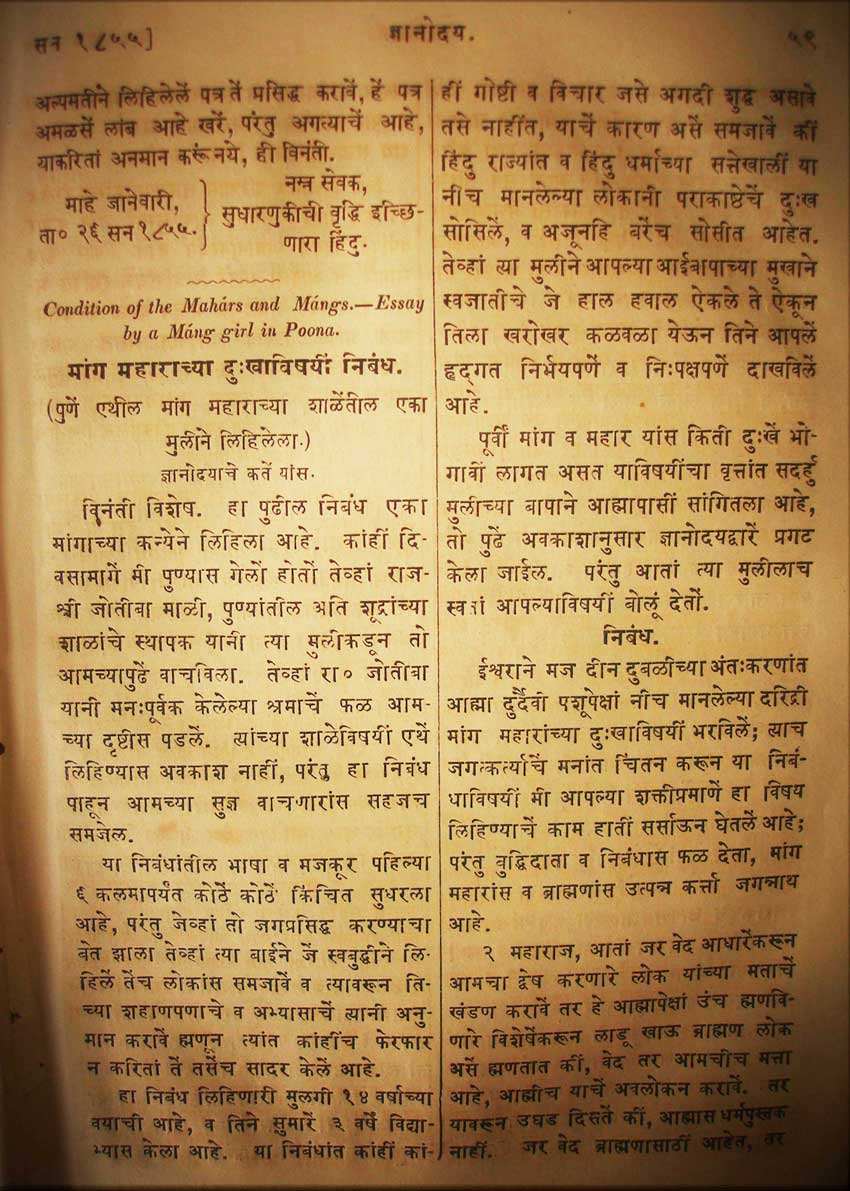 सन १८५५]
ज्ञानोदय.
५९
अल्पमतीने लिहिलेलें पत्र तें प्रसिद्ध करावें, हें पत्र
अमळसें लांब आहे खरें, परंतु अगत्याचें आहे,
याकरितां अनमान करूंनये, ही विनंती.
माहे जानेवारी,
ता० २६ सन १८५५.
नम्र सेवक,
सुधारणुकीची वृद्धि इच्छि-
णारा हिंदु.
Condition of the Mahárs and Mángs.—Essay
by a Máng girl in Poona.
मांग महाराच्या दुःखाविषयीं निबंध.
(पुणें एथील मांग महाराच्या शाळेंतील एका
मुलीने लिहिलेला.)
ज्ञानोदयाचे कर्ते यांस.
विनंती विशेष. हा पुढील निबंध एका
मांगाच्या कन्येने लिहिला आहे. कांहीं दि-
वसामागें मी पुण्यास गेलों होतों तेव्हां राज-
श्री जोतीबा माळी, पुण्यांतील अति शूद्रांच्या
शाळांचे स्थापक यानी त्या मुलीकडून तो
आमच्यापुढें वाचविला. तेव्हां रा० जोतीबा
यानी मनःपूर्वक केलेल्या श्रमाचें फळ आम-
च्या दृष्टीस पडलें. त्यांच्या शाळेविषयीं एथें
लिहिण्यास अवकाश नाहीं, परंतु हा निबंध
पाहून आमच्या सुज्ञ वाचणारांस सहजच
समजेल.
या निबंधांतील भाषा व मजकूर पहिल्या
६ कलमापर्यंत कोठें कोठें किंचित सुधरला
आहे, परंतु जेव्हां तो जगप्रसिद्ध करण्याचा
बेत झाला तेव्हां त्या बाईने जें स्वबुद्धीने लि-
हिलें तेंच लोकांस समजावें व त्यावरून ति-
च्या शहाणपणाचे व अभ्यासाचें त्यानी अनु-
मान करावें ह्मणून त्यांत कांहींच फेरफार
न करितां तें तसेंच सादर केलें आहे.
हा निबंध लिहिणारी मुलगी १४ वर्षाच्या
वयाची आहे, व तिने सुमारें ३ वर्षें विद्या-
भ्यास केला आहे. या निबंधांत कांहीं कां-
हीं गोष्टी व विचार जसे अगदी शुद्ध असावे
तसे नाहींत, याचें कारण असें समजावें कीं
हिंदु राज्यांत व हिंदु धर्माच्या सत्तेखालीं या
नीच मानलेल्या लोकानी पराकाष्ठेचें दुःख
सोसिलें, व अजूनहि बरेंच सोसीत आहेत.
तेव्हां त्या मुलीने आपल्या आईबापाच्या मुखाने
स्वजातीचे जे हाल हवाल ऐकले ते ऐकून
तिला खरोखर कळवळा येऊन तिने आपलें
हृद्गत निर्भयपणें व निःपक्षपणें दाखविलें
आहे.
पूर्वीं मांग व महार यांस किती दुःखें भो-
गावीं लागत असत याविषयींचा वृत्तांत सदर्हु
मुलीच्या बापाने आह्मापासीं सांगितला आहे,
तो पुढें अवकाशानुसार ज्ञानोदयद्वारें प्रगट
केला जाईल. परंतु आतां त्या मुलीलाच
स्वतां आपल्याविषयीं बोलूं देतों.
निबंध.
ईश्वराने मज दीन दुबळीच्या अंतःकरणांत
आह्मा दुर्दैवी पशूपेक्षां नीच मानलेल्या दरिद्री
मांग महारांच्या दुःखाविषयीं भरविलें; त्याच
जगत्कर्त्याचें मनांत चिंतन करून या निबं-
धाविषयीं मी आपल्या शक्तीप्रमाणें हा विषय
लिहिण्याचें काम हातीं सर्साऊन घेतलें आहे;
परंतु बुद्धिदाता व निबंधास फळ देता, मांग
महारांस व ब्राह्मणांस उत्पन्न कर्त्ता जगन्नाथ
आहे.
२ महाराज, आतां जर वेद आधारेंकरून
आमचा द्वेष करणारे लोक यांच्या मताचें
खंडण करावें तर हे आह्मापेक्षां उंच ह्मणवि-
णारे विशेषेंकरून लाडू खाऊ ब्राह्मण लोक
असें ह्मणतात कीं, वेद तर आमचीच मत्ता
आहे, आह्मीच याचें अवलोकन करावें. तर
यावरून उघड दिसतें कीं, आह्मास धर्मपुस्तक
नाहीं. जर वेद ब्राह्मणासाठीं आहेत, तर